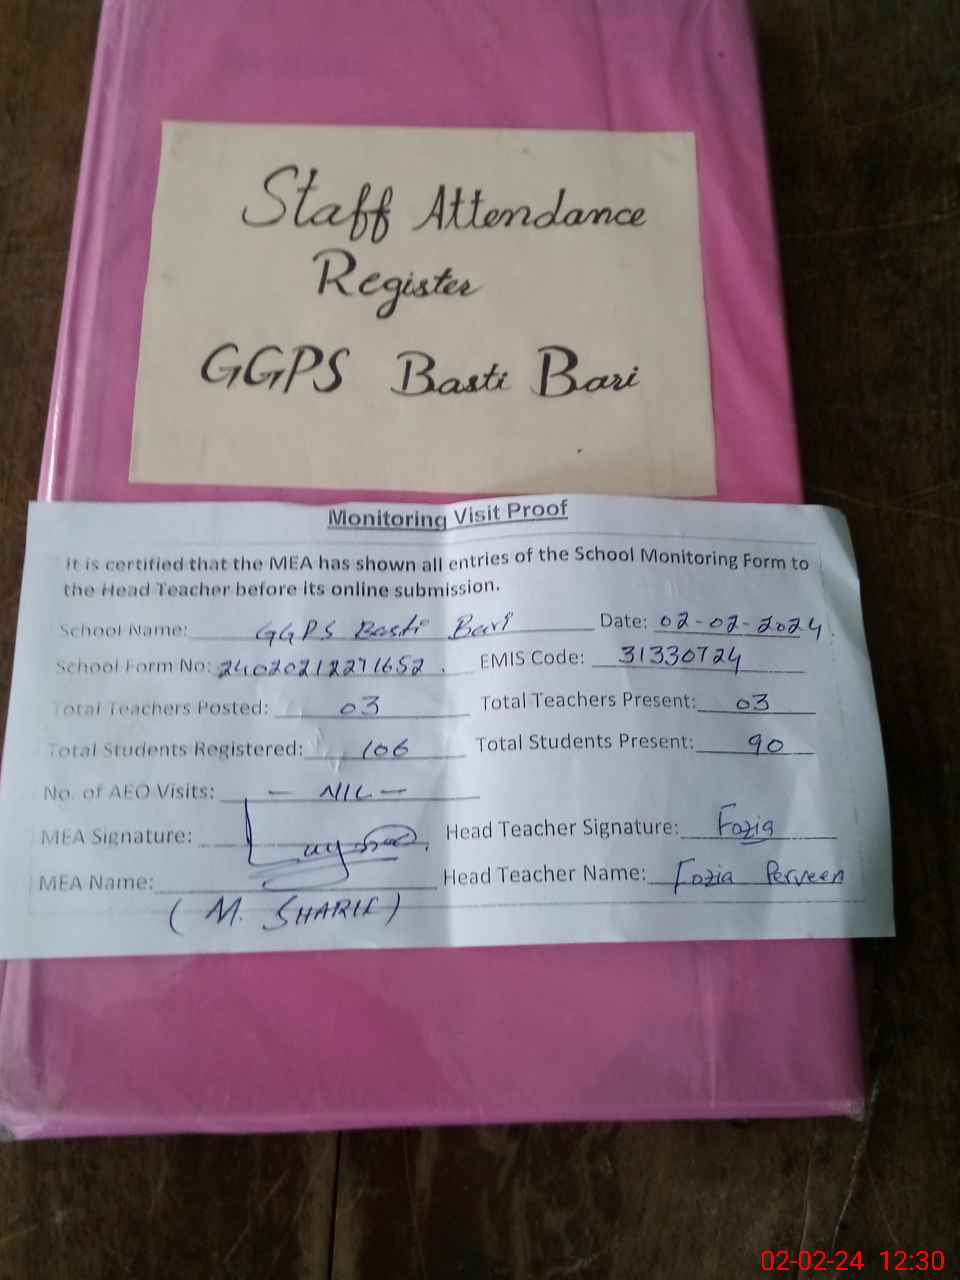 Staff Attendance
Register
GGPS Basti Bari
Monitoring Visit Proof
It is certified that the MEA has shown all entries of the School Monitoring Form to
the Head Teacher before its online submission.
School Name: GGPS Basti Bari Date: 02-02-2024.
School Form No: 24020212271652. EMIS Code: 31330724
Total Teachers Posted: 03 Total Teachers Present: 03
Total Students Registered: 106 Total Students Present: 90
No. of AEO Visits: - NIL -
MEA Signature: Head Teacher Signature: Fozia
MEA Name: Head Teacher Name: Fozia Perveen
(M. SHARIF)
02-02-24 12:30